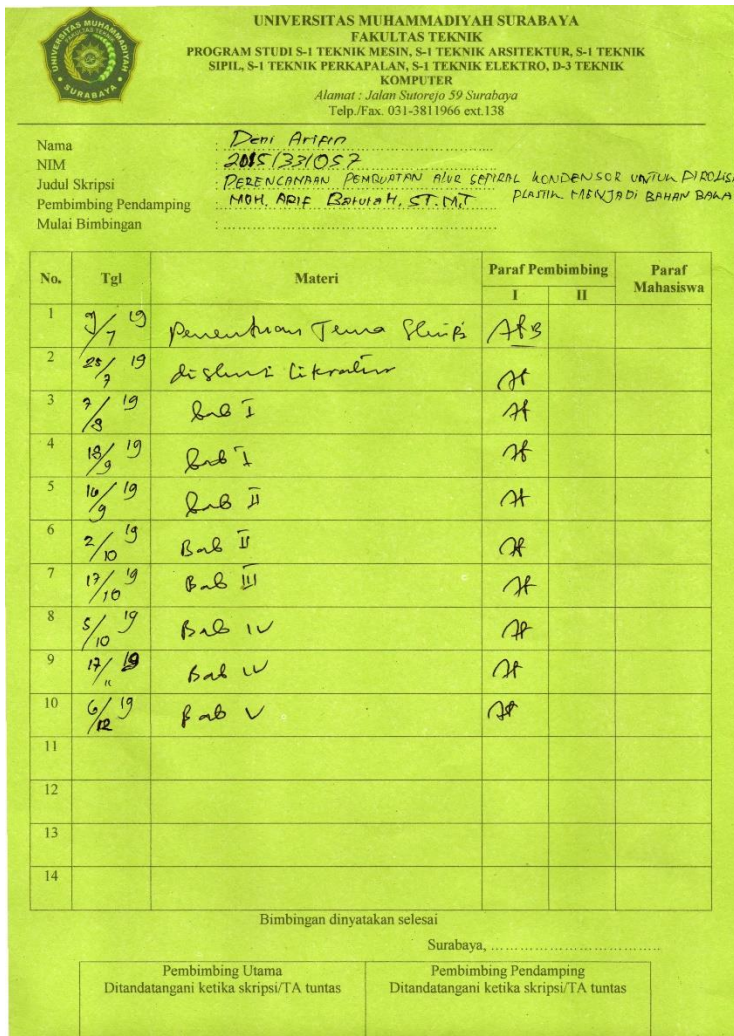 UNIVERSITAS MUHAMMADIYAH SURABAYA
FAKULTAS TEKNIK
PROGRAM STUDI S-1 TEKNIK MESIN, S-1 TEKNIK ARSITEKTUR, S-1 TEKNIK
SIPIL, S-1 TEKNIK PERKAPALAN, S-1 TEKNIK ELEKTRO, D-3 TEKNIK
KOMPUTER
Alamat : Jalan Sutorejo 59 Surabaya
Telp./Fax. 031-3811966 ext.138
UNIVERSITAS MUHAMMADIYAH
FAKULTAS TEKNIK
SURABAYA
Nama : Deni Arifin
NIM : 20151331057
Judul Skripsi : PERENCANAAN PEMBUATAN ALUR SEPIRAL KONDENSOR UNTUK PIROLISI
PLASTIK MENJADI BAHAN BAKA
Pembimbing Pendamping : MOH. ARIF ST. M.T
Mulai Bimbingan :
No. Tgl Materi Paraf Pembimbing Paraf Mahasiswa
I II
1 9/7 19 Penentuan Tema Skripsi
2 25/7 19 diskusi literatur
3 7/8 19 bab I
4 18/9 19 bab I
5 16/9 19 bab II
6 2/10 19 Bab II
7 17/10 19 Bab III
8 5/10 19 Bab IV
9 17/11 19 Bab IV
10 6/12 19 Bab V
11
12
13
14
Bimbingan dinyatakan selesai
Surabaya, ....................................
Pembimbing Utama
Ditandatangani ketika skripsi/TA tuntas
Pembimbing Pendamping
Ditandatangani ketika skripsi/TA tuntas